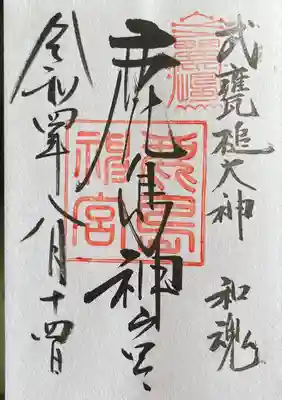 武甕槌大神 和魂
鹿島神宮
令和四年八月十四日
鹿島
神宮